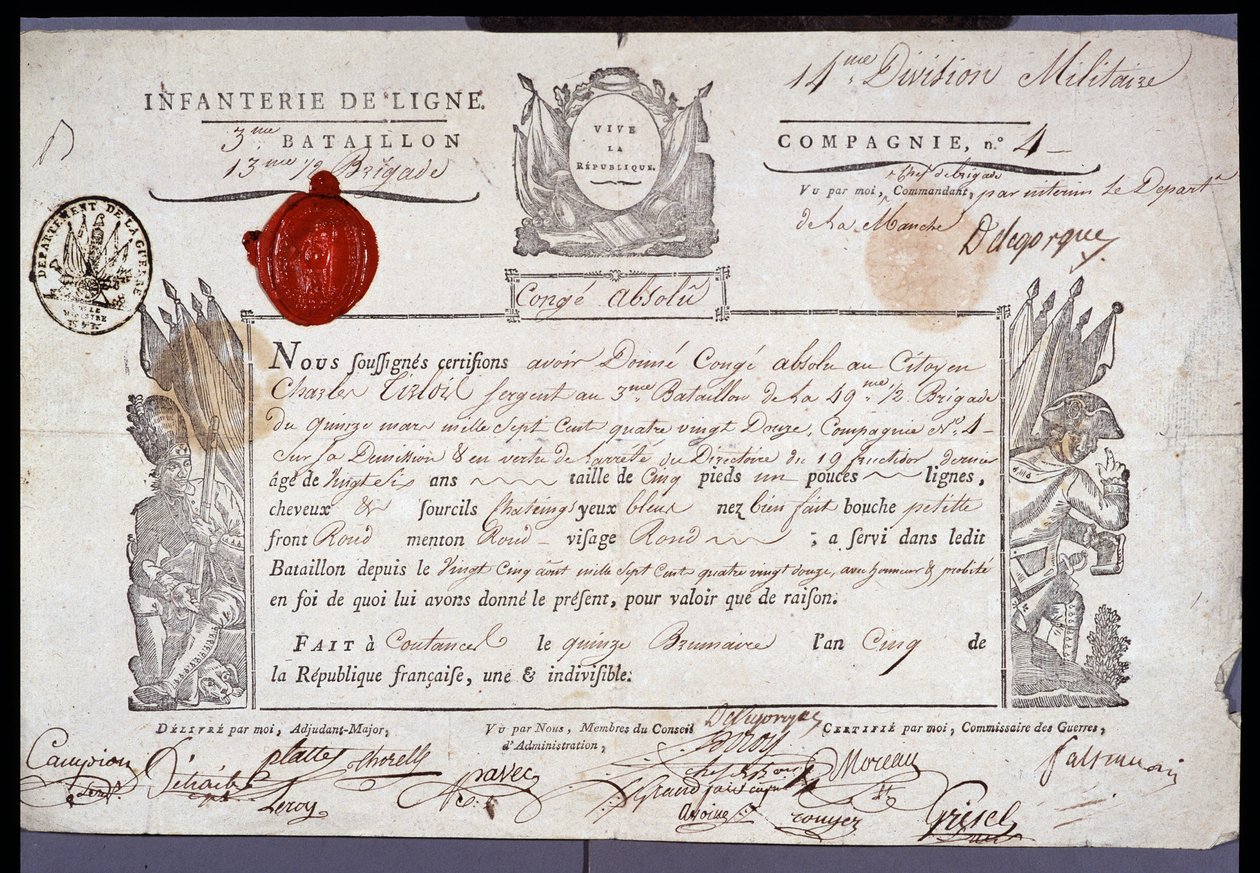 14me Division Militaire
INFANTERIE DE LIGNE.
3me BATAILLON
13me 1/2 Brigade
VIVE
LA
RÉPUBLIQUE.
COMPAGNIE, n.° 4
chef de brigade
Vu par moi, Commandant, par interim le Départt
de la Manche
Delegorgue
DÉPARTEMENT DE LA GUERRE
MINISTRE
Congé absolu
Nous soussignés certifions avoir Donné Congé absolu au Citoyen
Charles sergent au 3me Bataillon de la 49me 1/2 Brigade
du quinze mars mille sept cent quatre vingt Douze, Compagnie No. 4
sur sa Demission & en vertu de l'arrêté du Directoire du 19 fructidor dernier
âgé de Vingt Six ans taille de Cinq pieds un pouces lignes,
cheveux & sourcils Chateings yeux bleus nez bien fait bouche petitte
front Rond menton Rond visage Rond ; a servi dans ledit
Bataillon depuis le Vingt Cinq aout mille sept cent quatre vingt douze, avec honneur & probité
en foi de quoi lui avons donné le présent, pour valoir que de raison.
FAIT à Coutances le quinze Brumaire l'an Cinq de
la République française, une & indivisible.
DÉLIVRÉ par moi, Adjudant-Major,
Vu par Nous, Membres du Conseil
d'Administration,
CERTIFIÉ par moi, Commissaire des Guerres,
Delegorgue
Campion
Leroy
Moreau
Antoine
Grisel